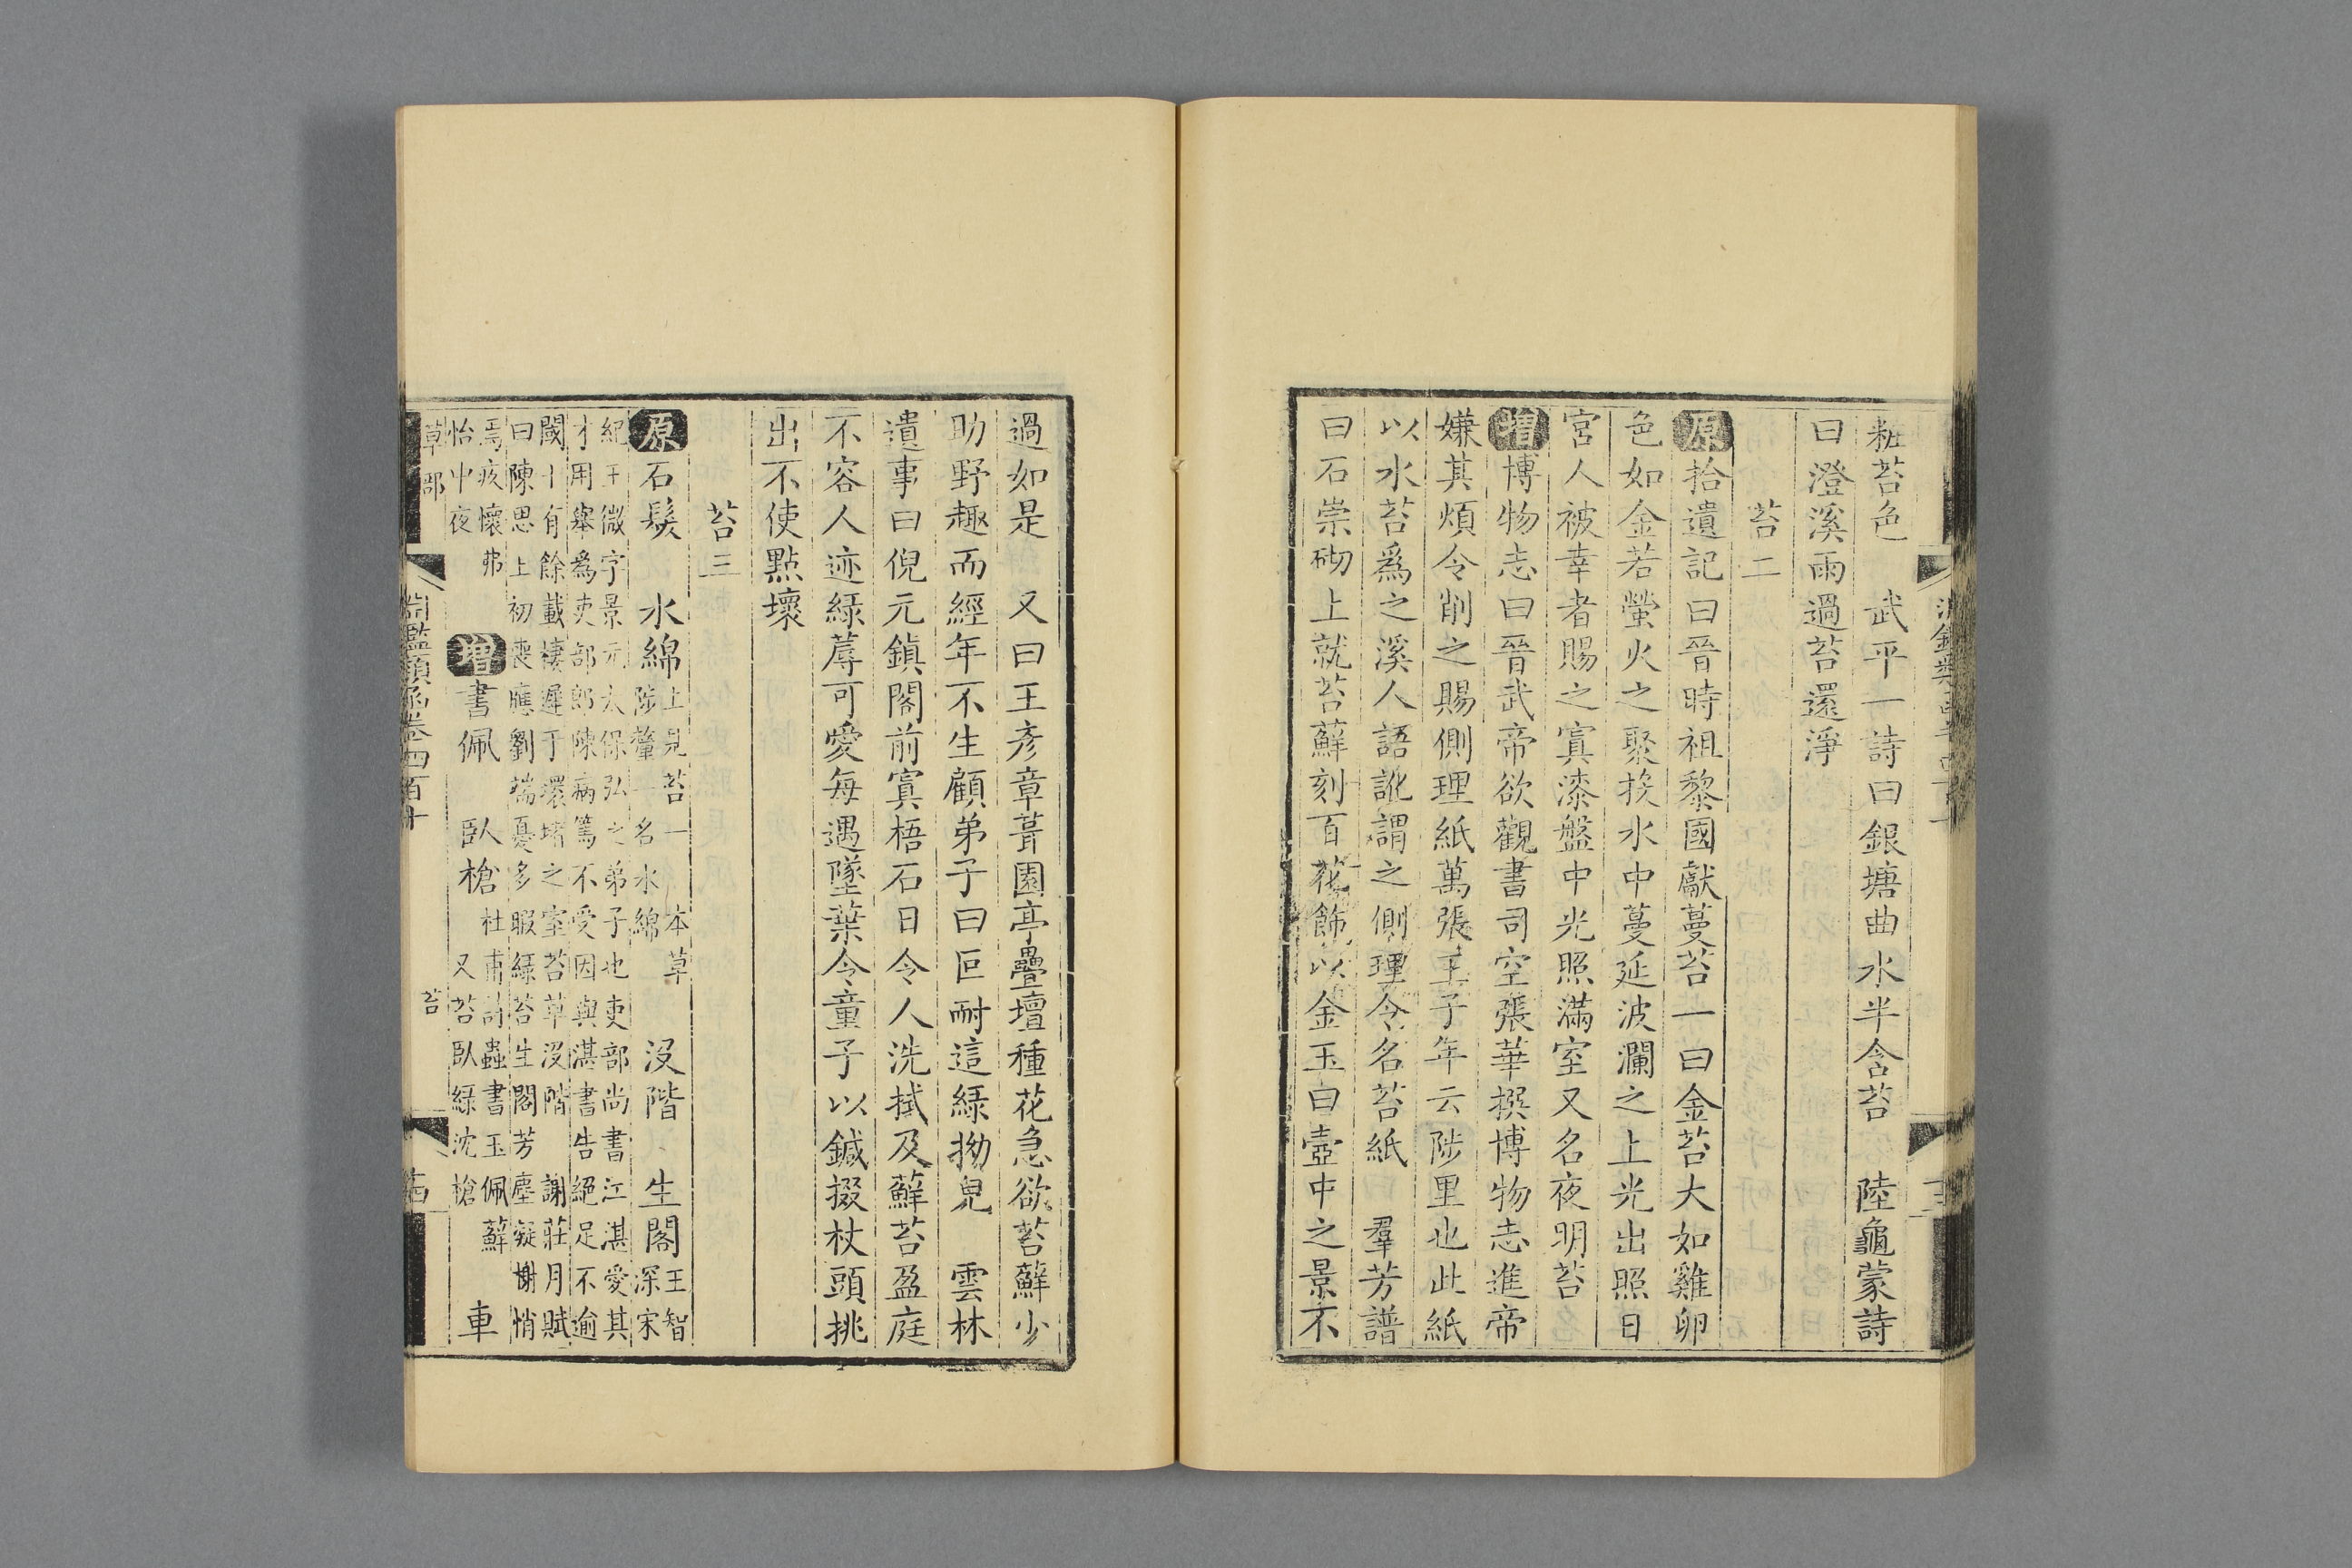 粧苔色　武平一詩曰銀塘曲水半含苔　陸龜蒙詩
曰澄溪雨過苔還淨
苔二
原拾遺記曰晉時祖黎國獻蔓苔一曰金苔大如雞卵
色如金若螢火之聚挨水中蔓延波瀾之上光出照日
宮人被幸者賜之寘漆盤中光照滿室又名夜明苔
增博物志曰晉武帝欲觀書司空張華撰博物志進帝
嫌其煩令削之賜側理紙萬張王子年云陟里也此紙
以水苔爲之溪人語訛謂之側理今名苔紙　羣芳譜
曰石崇砌上就苔蘚刻百花飾以金玉曰壺中之景不
過如是　又曰王彥章葺園亭疊壇種花急欲苔蘚少
助野趣而經年不生顧弟子曰叵耐這綠拗兒　雲林
遺事曰倪元鎮閣前寘梧石日令人洗拭及蘚苔盈庭
不容人迹綠蓐可愛每遇墜葉令童子以鍼掇杖頭挑
出不使點壞
苔三
原石髮　水綿上見苔一本草
陟釐一名水綿　沒階　生閣王智
深宋
紀王微字景元太保弘之弟子也吏部尚書江湛愛其
才用舉爲吏部郎陳病篤不受因與湛書告絕足不逾
閾十有餘載棲遲于環堵之室苔草沒階　謝莊月賦
曰陳思上初喪應劉端憂多暇綠苔生閣芳塵凝榭悄
焉疚懷弗
怡中夜　增書佩　臥槍杜甫詩蟲書玉佩蘚
又苔臥綠沈槍　車
草部
苔